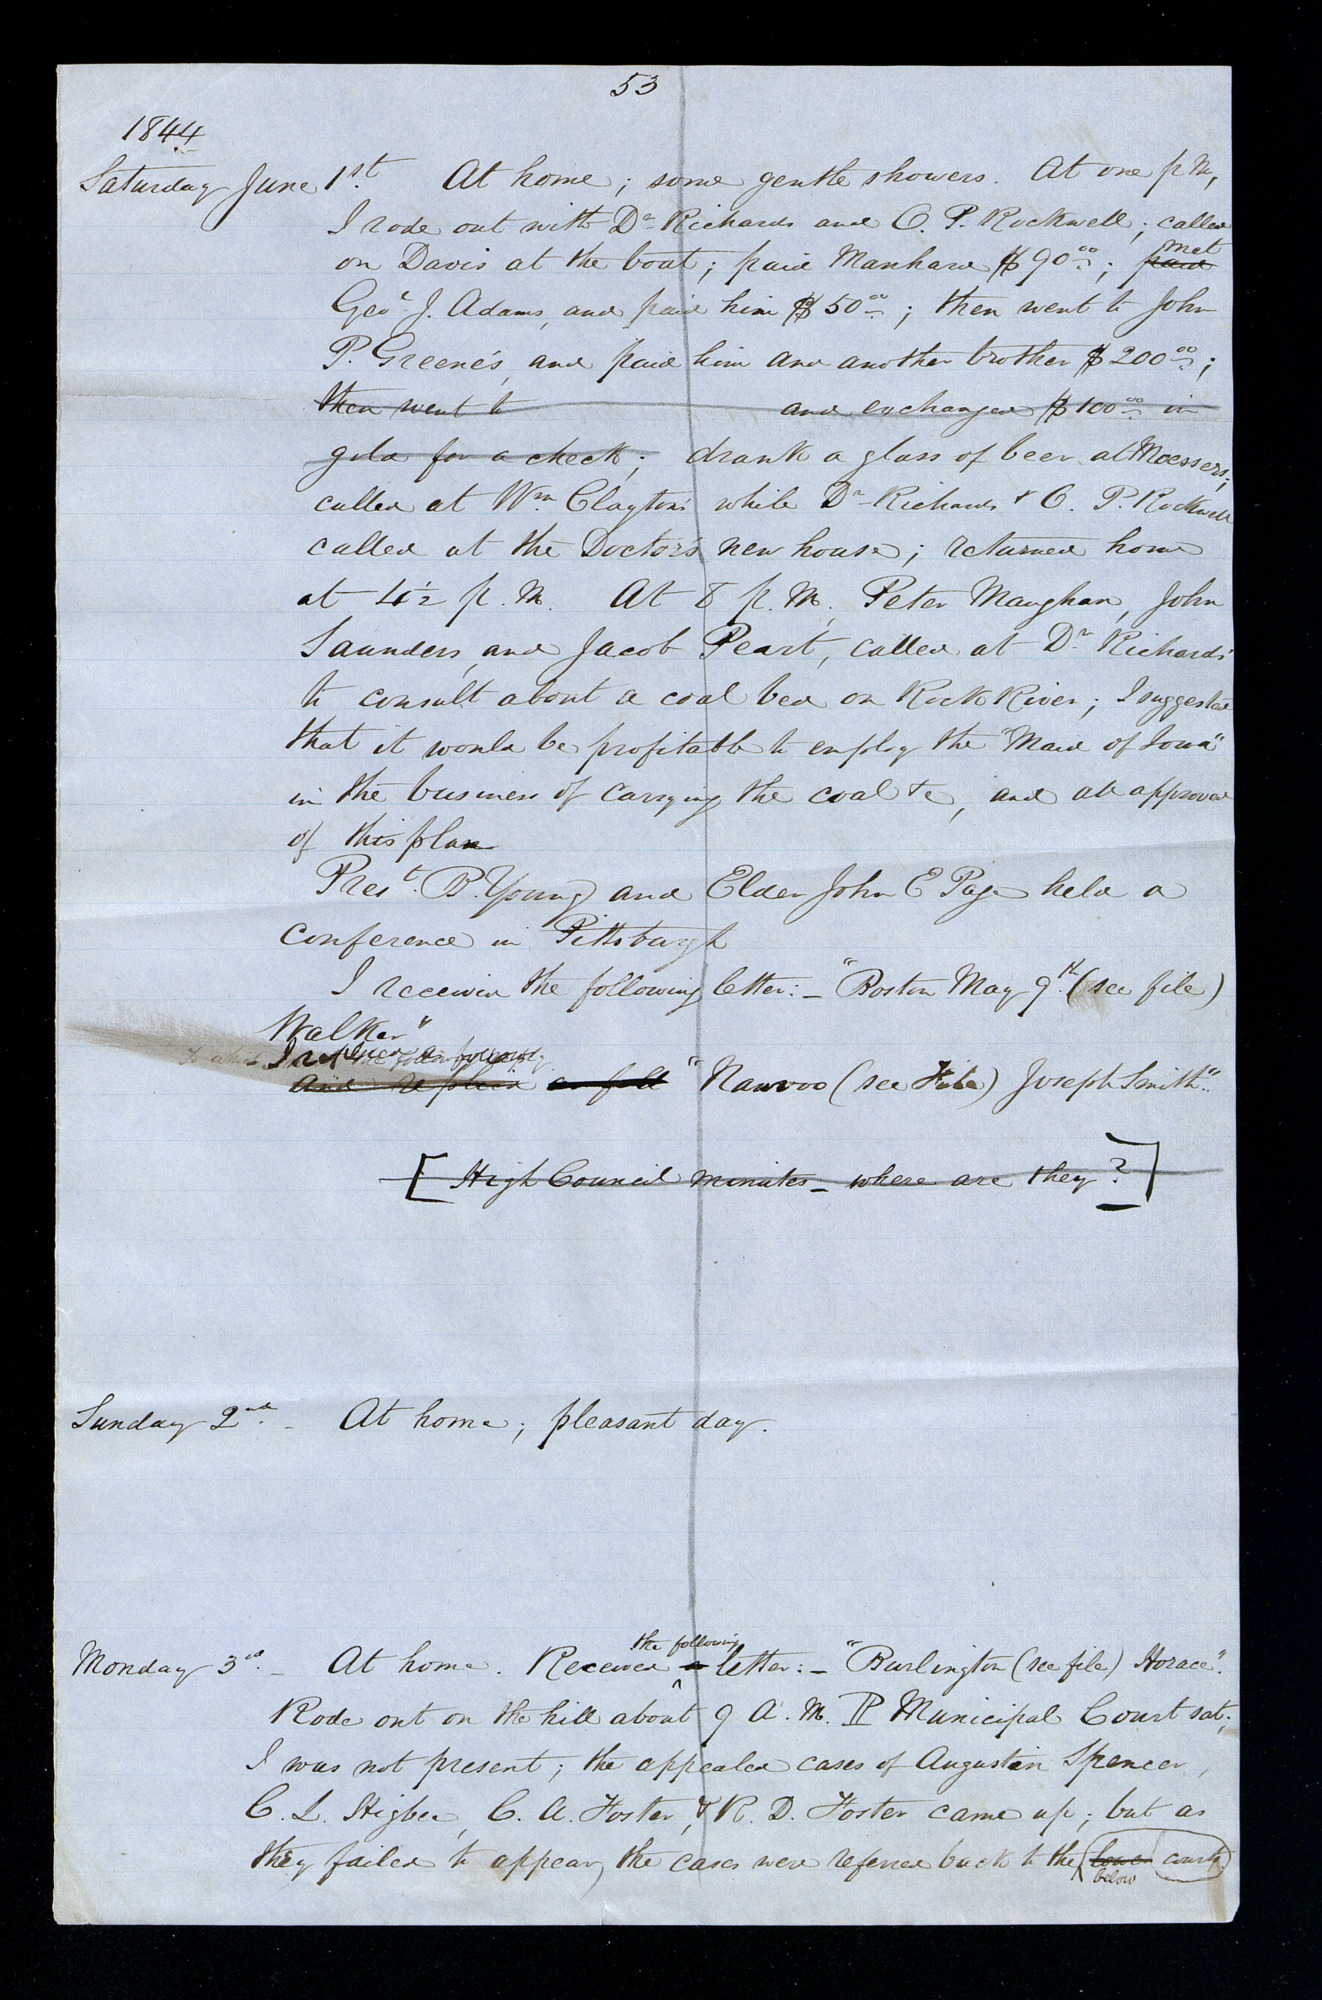 53
1844
Saturday June 1st. At home; some gentle showers. At one p M,
I rode out with Dr. Richards and O. P. Rockwell; called
on Davis at the boat; paid Manhard $90.00; paid met
Geo. J. Adams, and paid him $50.00; then went to John
P. Greene's, and paid him and another brother $200.00;
then went to and exchanged $100.00 in
gold for a check; drank a glass of beer at Moessers;
called at Wm. Clayton's while Dr. Richards & O. P. Rockwell
called at the Doctor's new house; returned home
at 4 1/2 p. M. At 8 p. M. Peter Maughan, John
Saunders, and Jacob Peart, called at Dr. Richards'
to consult about a coal bed on Rock River; I suggested
that it would be profitable to employ the "Maid of Iowa"
in the business of carrying the coal &c, and all approved
of this plan
Prest. B. Young and Elder John E Page held a
conference in Pittsburgh
I received the following letter:– "Boston May 9th. (see file)
Walker"
To which I replied as follows
and replied as foll "Nauvoo (see File) Joseph Smith".
[High Council minutes – where are they?]
Sunday 2nd. – At home; pleasant day.
the following
Monday 3rd. – At home. Received a letter:– "Burlington (see file) Horace".
Rode out on the hill about 9 A. M. P Municipal Court sat;
I was not present; the appealed cases of Augustin Spencer,
C. L. Higbee, C. A. Foster, & R. D. Foster came up; but as
they failed to appear, the cases were referred back to the lower courts
below